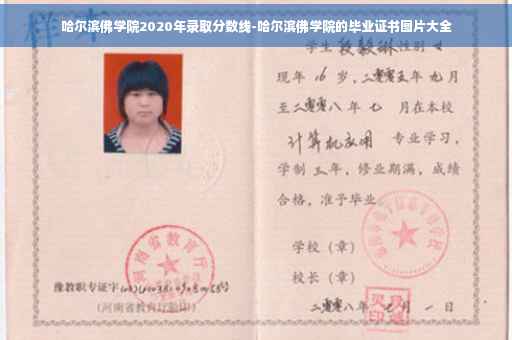 哈尔滨佛学院2020年录取分数线-哈尔滨佛学院的毕业证书图片大全
样本
学生 段毅琳 性别 女
现年 16 岁，二零零五年 九 月
至二零零八年 七 月在本校
计算机应用 专业学习，
学制 三 年，修业期满，成绩
合格，准予毕业
学校（章）
校长（章）
二零零八年 月 一 日
河南省教育厅
豫教职专证字
（河南省教育厅验印）